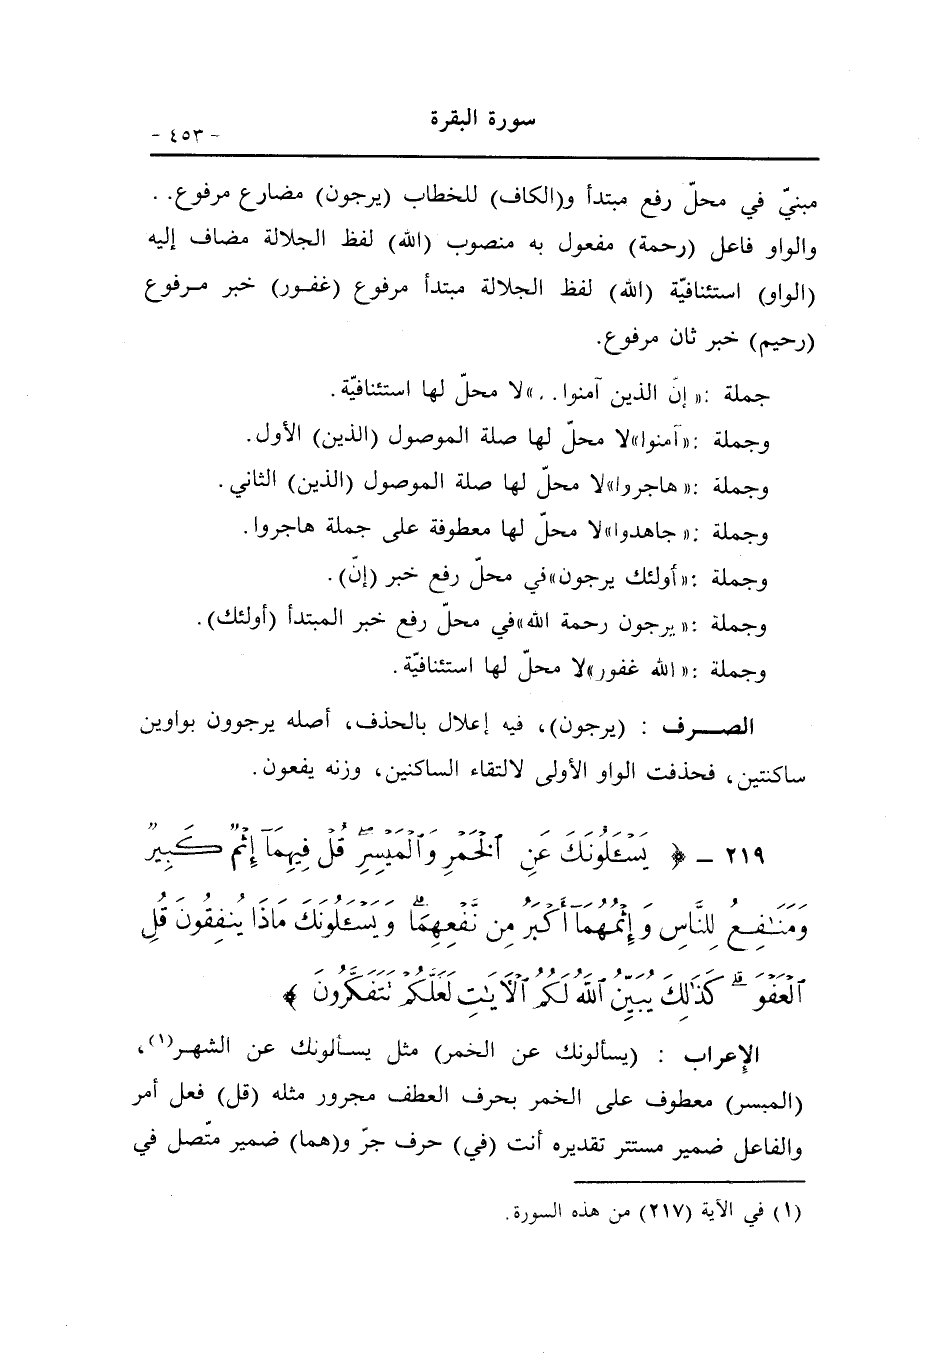 سورة البقرة
- ٤٥٣ -
مبنيّ في محلّ رفع مبتدأ و(الكاف) للخطاب (يرجون) مضارع مرفوع. .
والواو فاعل (رحمة) مفعول به منصوب (الله) لفظ الجلالة مضاف إليه
(الواو) استئنافيّة (الله) لفظ الجلالة مبتدأ مرفوع (غفور) خبر مرفوع
(رحيم) خبر ثان مرفوع.
جملة :« إنّ الذين آمنوا. . .»لا محلّ لها استئنافيّة.
وجملة :«آمنوا»لا محلّ لها صلة الموصول (الذين) الأول.
وجملة :« هاجروا»لا محلّ لها صلة الموصول (الذين) الثاني.
وجملة :« جاهدوا»لا محلّ لها معطوفة على جملة هاجروا.
وجملة :«أولئك يرجون»في محلّ رفع خبر (إنّ).
وجملة :« يرجون رحمة الله»في محلّ رفع خبر المبتدأ (أولئك).
وجملة :« الله غفور»لا محلّ لها استئنافيّة.
الصرف : (يرجون)، فيه إعلال بالحذف، أصله يرجوون بواوين
ساكنتين، فحذفت الواو الأولى لالتقاء الساكنين، وزنه يفعون.
٢١٩ - ﴿ يَسْـَٔلُونَكَ عَنِ ٱلْخَمْرِ وَٱلْمَيْسِرِ ۖ قُلْ فِيهِمَآ إِثْمٌ كَبِيرٌ
وَمَنَٰفِعُ لِلنَّاسِ وَإِثْمُهُمَآ أَكْبَرُ مِن نَّفْعِهِمَا ۗ وَيَسْـَٔلُونَكَ مَاذَا يُنفِقُونَ قُلِ
ٱلْعَفْوَ ۗ كَذَٰلِكَ يُبَيِّنُ ٱللَّهُ لَكُمُ ٱلْآيَٰتِ لَعَلَّكُمْ تَتَفَكَّرُونَ ﴾
الإعراب : (يسألونك عن الخمر) مثل يسألونك عن الشهر(١)،
(الميسر) معطوف على الخمر بحرف العطف مجرور مثله (قل) فعل أمر
والفاعل ضمير مستتر تقديره أنت (في) حرف جرّ و(هما) ضمير متّصل في
(١) في الآية (٢١٧) من هذه السورة.